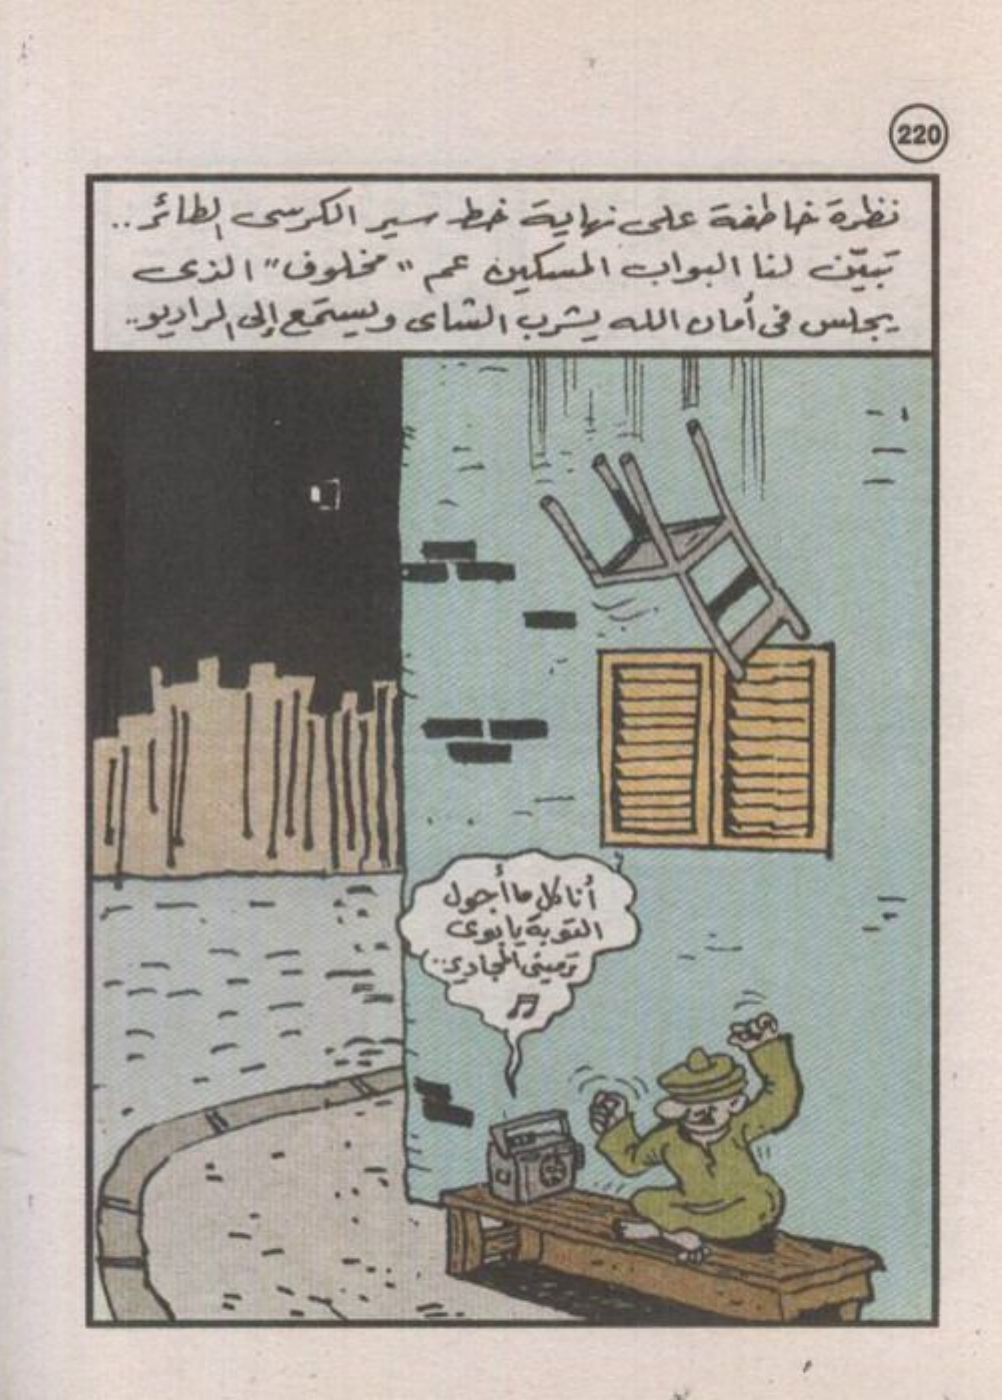 220
نظرة خاطفة على نهاية خط سير الكرسى الطائر..
تبيّن لنا البواب المسكين عم "مخلوف" الذى
يجلس فى أمان الله يشرب الشاى ويستمع إلى الراديو..
أنا كل ما أجول
التوبة يا بوى
ترمينى المجادير..